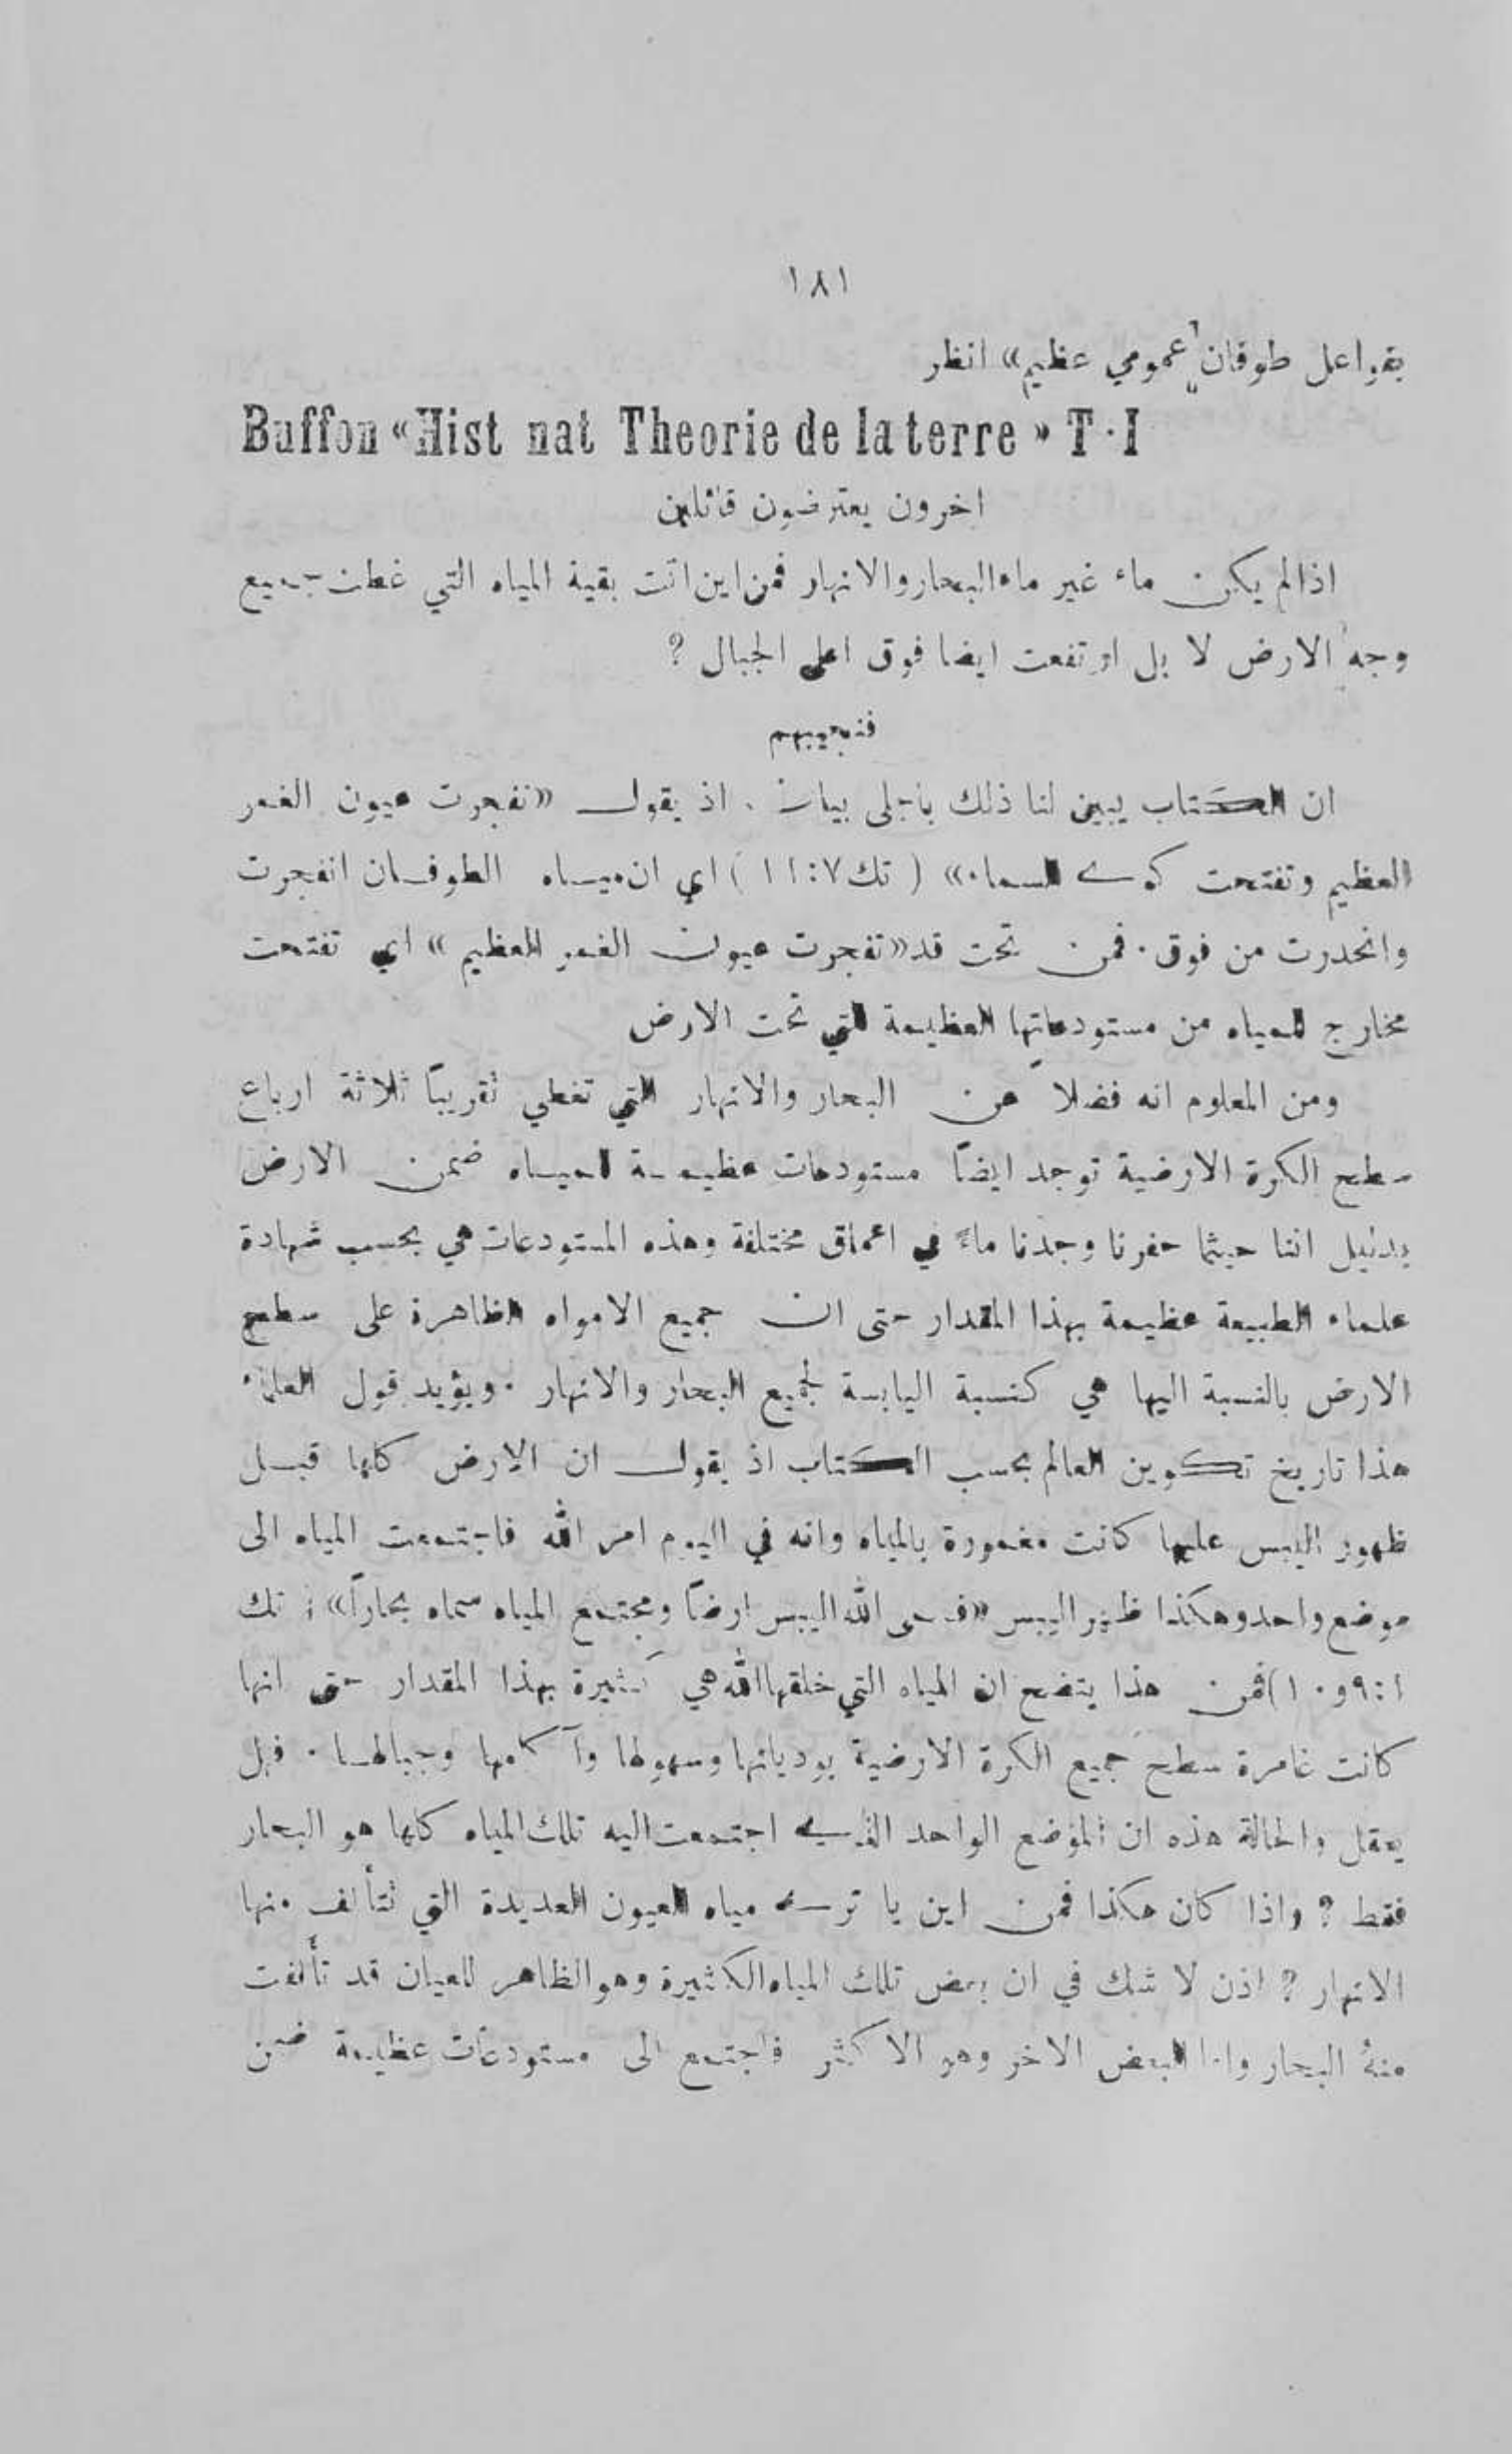 ١٨١
بفواعل طوفان عمومي عظيم» انظر
Buffon «Hist nat Theorie de la terre» T·I
اخرون يعترضون قائلين
اذا لم يكن ماء غير ماء البحار والانهار فمن اين اتت بقية المياه التي غطت جميع
وجه الارض لا بل ارتفعت ايضا فوق اعلى الجبال ?
فنجيبهم
ان الكتاب يبين لنا ذلك باجلى بيان . اذ يقول «تفجرت عيون الغمر
العظيم وتفتحت كوى السماء» (تك ٧:١١) اي ان مياه الطوفان انفجرت
وانحدرت من فوق . فمن تحت قد «تفجرت عيون الغمر العظيم» اي تفتحت
مخارج للمياه من مستودعاتها العظيمة التي تحت الارض
ومن المعلوم انه فضلاً عن البحار والانهار التي تغطي تقريبًا ثلاثة ارباع
سطح الكرة الارضية توجد ايضًا مستودعات عظيمة للمياه ضمن الارض
بدليل اننا حيثما حفرنا وجدنا ماءً في اعماق مختلفة وهذه المستودعات هي بحسب شهادة
علماء الطبيعة عظيمة بهذا المقدار حتى ان جميع الامواه الظاهرة على سطح
الارض بالنسبة اليها هي كنسبة اليابسة لجميع البحار والانهار . ويؤيد قول العلماء
هذا تاريخ تكوين العالم بحسب الكتاب اذ يقول ان الارض كلها قبل
ظهور اليبس عليها كانت مغمورة بالمياه وانه في اليوم امر الله فاجتمعت المياه الى
موضع واحد وهكذا ظهر اليبس «فسمى الله اليبس ارضًا ومجتمع المياه سماه بحارًا» ( تك
١:٩و١٠) فمن هذا يتضح ان المياه التي خلقها الله هي كثيرة بهذا المقدار حتى انها
كانت غامرة سطح جميع الكرة الارضية بوديانها وسهولها وآكامها وجبالها . فهل
يعقل والحالة هذه ان الموضع الواحد الذي اجتمعت اليه تلك المياه كلها هو البحار
فقط ? واذا كان هكذا فمن اين يا ترى مياه العيون العديدة التي تتألف منها
الانهار ? اذن لا شك في ان بعض تلك المياه الكثيرة وهو الظاهر للعيان قد تألفت
منهُ البحار واما البعض الاخر وهو الاكثر فاجتمع الى مستودعات عظيمة ضمن